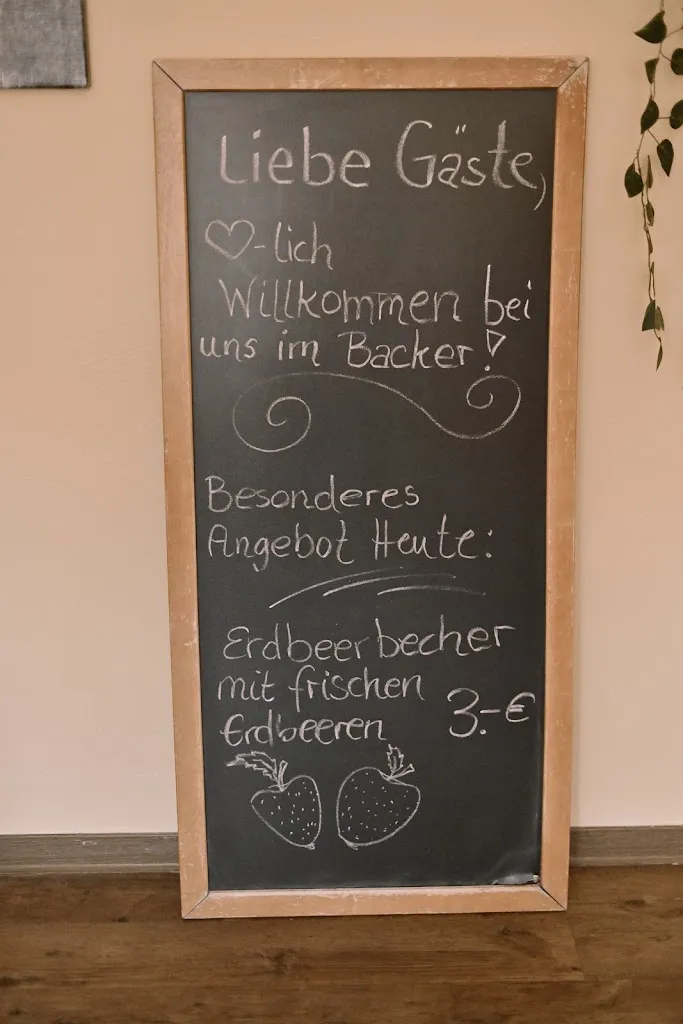 Liebe Gäste,
♡-lich
Willkommen bei
uns im Backer!
Besonderes
Angebot Heute:
Erdbeerbecher
mit frischen
Erdbeeren 3.-€